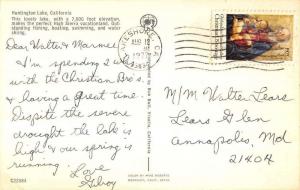 Huntington Lake, California
This lovely lake, with a 7,000 foot elevation,
makes the perfect High Sierra vacationland. Out-
standing fishing, boating, swimming, and water
skiing.
LAKESHORE, CA
AUG
1977
Dear Walter & Marnee
I'm spending 2 wks
with the Christian Bro's.
& having a great time.
Despite the severe
drought the lake is
high & our spring is
running.
Love
Gilroy
M/M Walter Lears
Lears Glen
Annapolis, Md
21404
C22593
COLOR BY MIKE ROBERTS
BERKELEY, CALIF. 94710